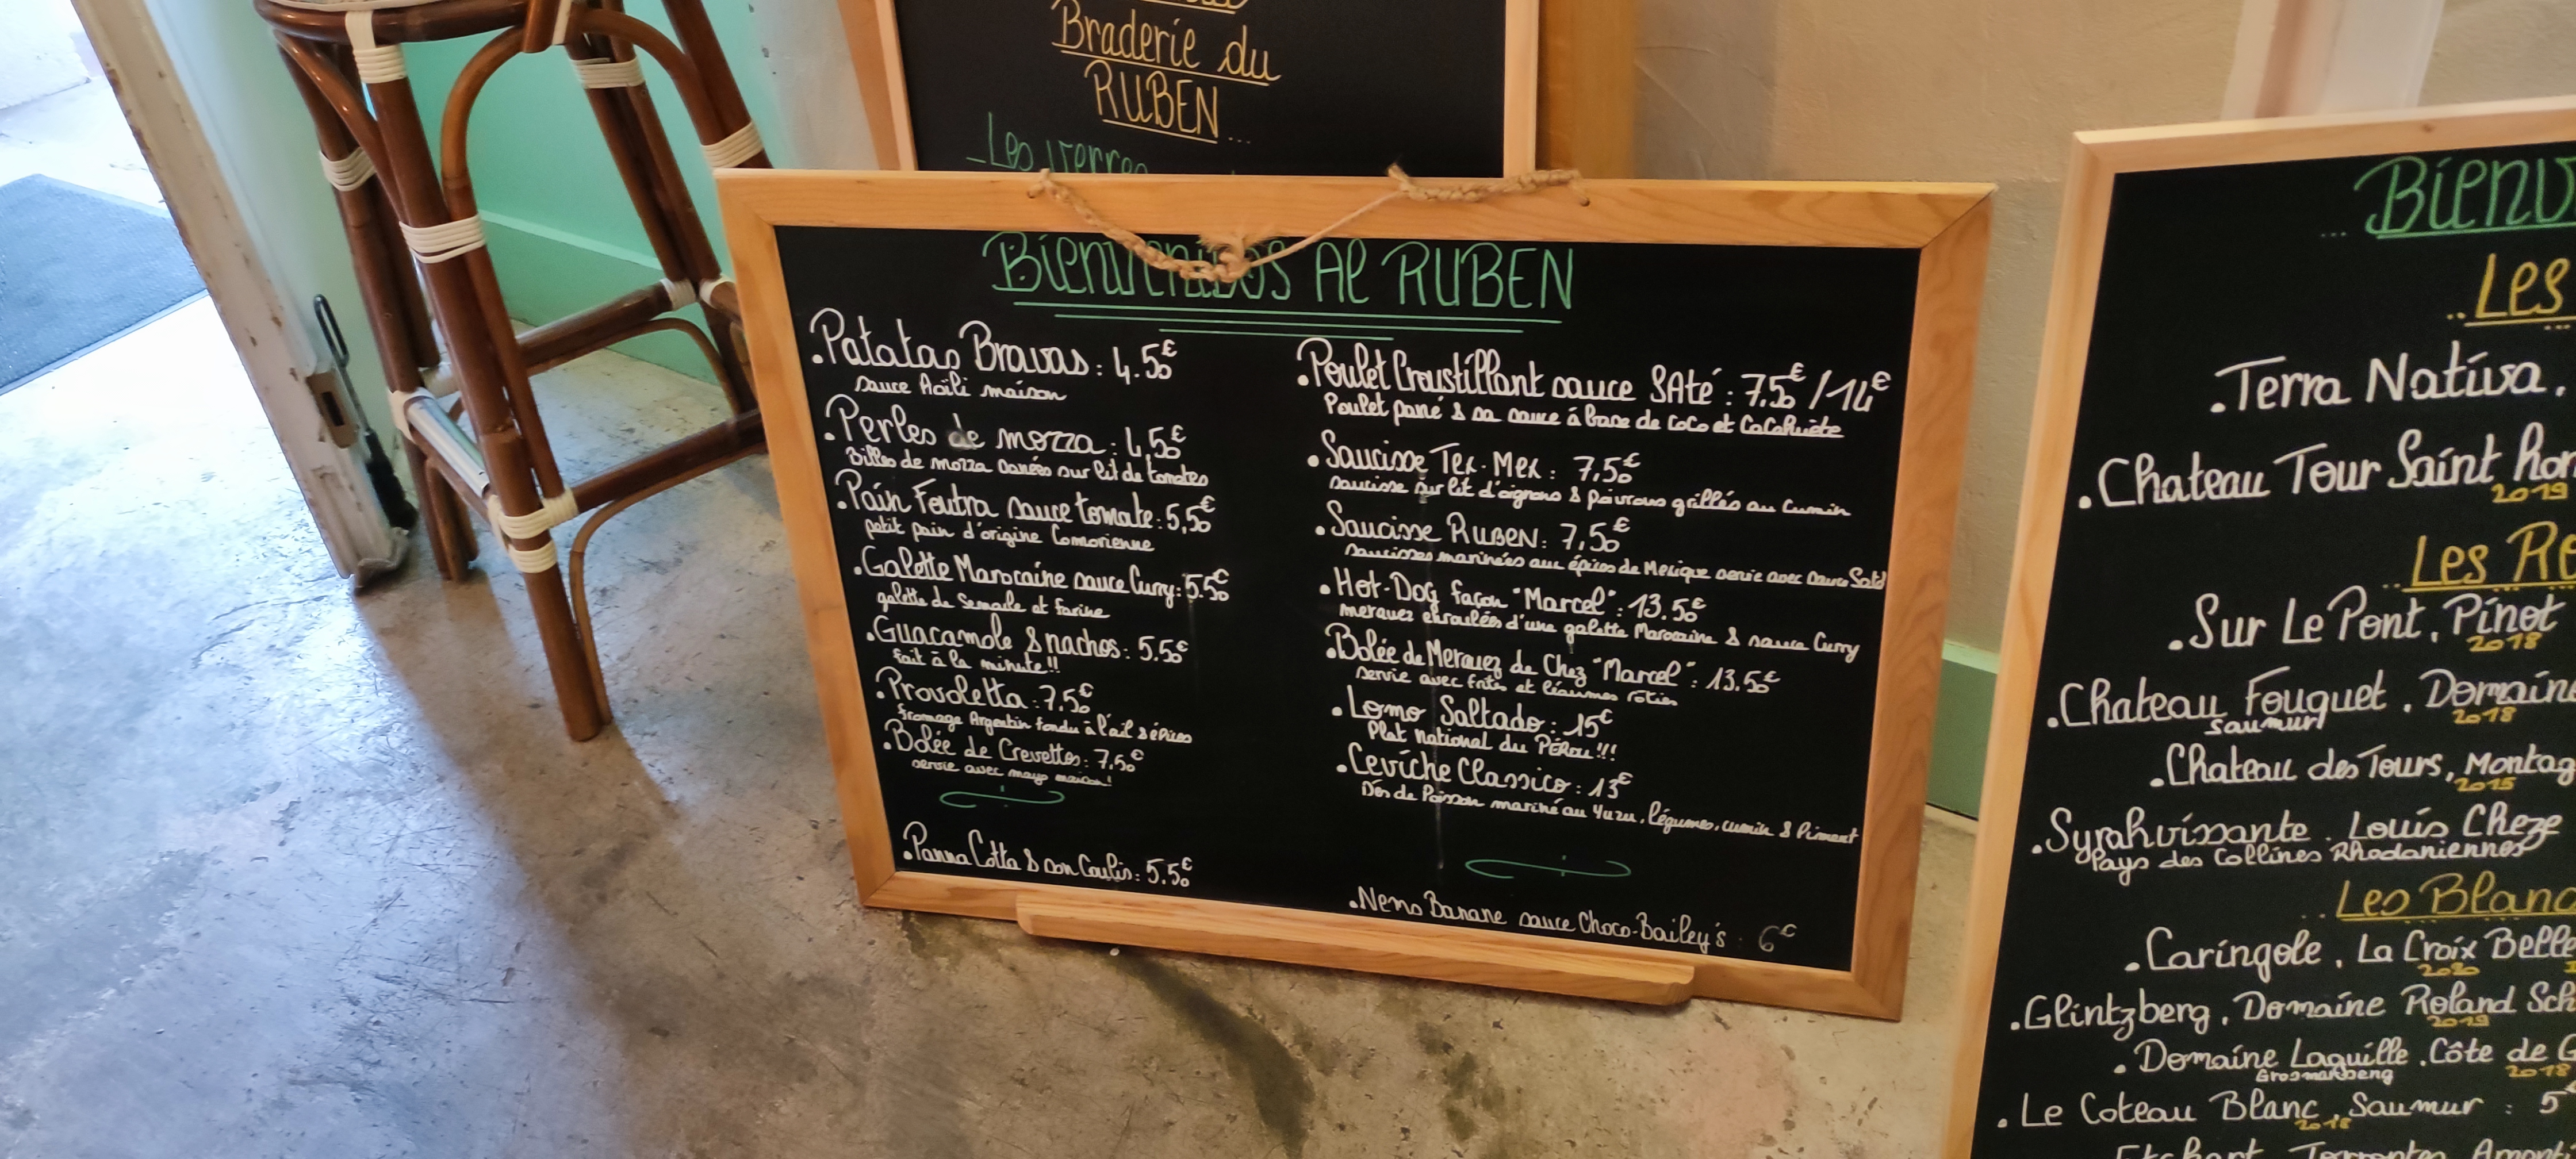 Braderie du
RUBEN...
_Les verres
Bienvenidos Al RUBEN
.Patatas Bravas : 4.50€
sauce Aoïli maison
.Perles de mozza : 4,50€
Billes de mozza panées sur lit de tomates
.Pain Foutra sauce tomate : 5,50€
petit pain d'origine Comorienne
.Galette Marocaine sauce Curry : 5.50€
galette de Semoule et farine
.Guacamole & nachos : 5.50€
fait à la minute!!
.Provoletta : 7,50€
fromage Argentin fondu à l'ail & épices
.Bolée de Crevettes : 7,50€
servie avec mayo maison!
.Panna Cotta & son Coulis : 5.50€
.Poulet Croustillant sauce SAté : 7.50€ / 14€
Poulet pané & sa sauce à base de Coco et Cacahuète
.Saucisse Tex-Mex : 7,50€
saucisse sur lit d'oignons & poivrons grillés au Cumin
.Saucisse RUBEN : 7,50€
saucisses marinées aux épices de Mexique servie avec sauce
.Hot-Dog façon "Marcel" : 13.50€
merguez enroulées d'une galette Marocaine & sauce Curry
.Bolée de Merguez de Chez "Marcel" : 13.50€
servie avec frites et légumes rôties
.Lomo Saltado : 15€
Plat National du PÉRou!!!
.Ceviche Classico : 13€
Dés de Poisson mariné au Yuzu, légumes, cumin & Piment
.Nems Banane sauce Choco-Bailey's : 6€
... Bienv
..Les
.Terra Nativa.
.Chateau Tour Saint
2019
..Les Ro
.Sur Le Pont, Pinot
2018
.Chateau Fouquet. Domaine
Saumur 2018
.Chateau des Tours, Montag
2015
.Syrahvissante. Louis Cheze
Pays des Collines Rhodaniennes
..Les Blanc
.Caringole, La Croix Belle
2020
.Glintzberg, Domaine Roland Sch
2019
.Domaine Laguille. Côte de G
2018
.Le Coteau Blanc, Saumur : 5
2018